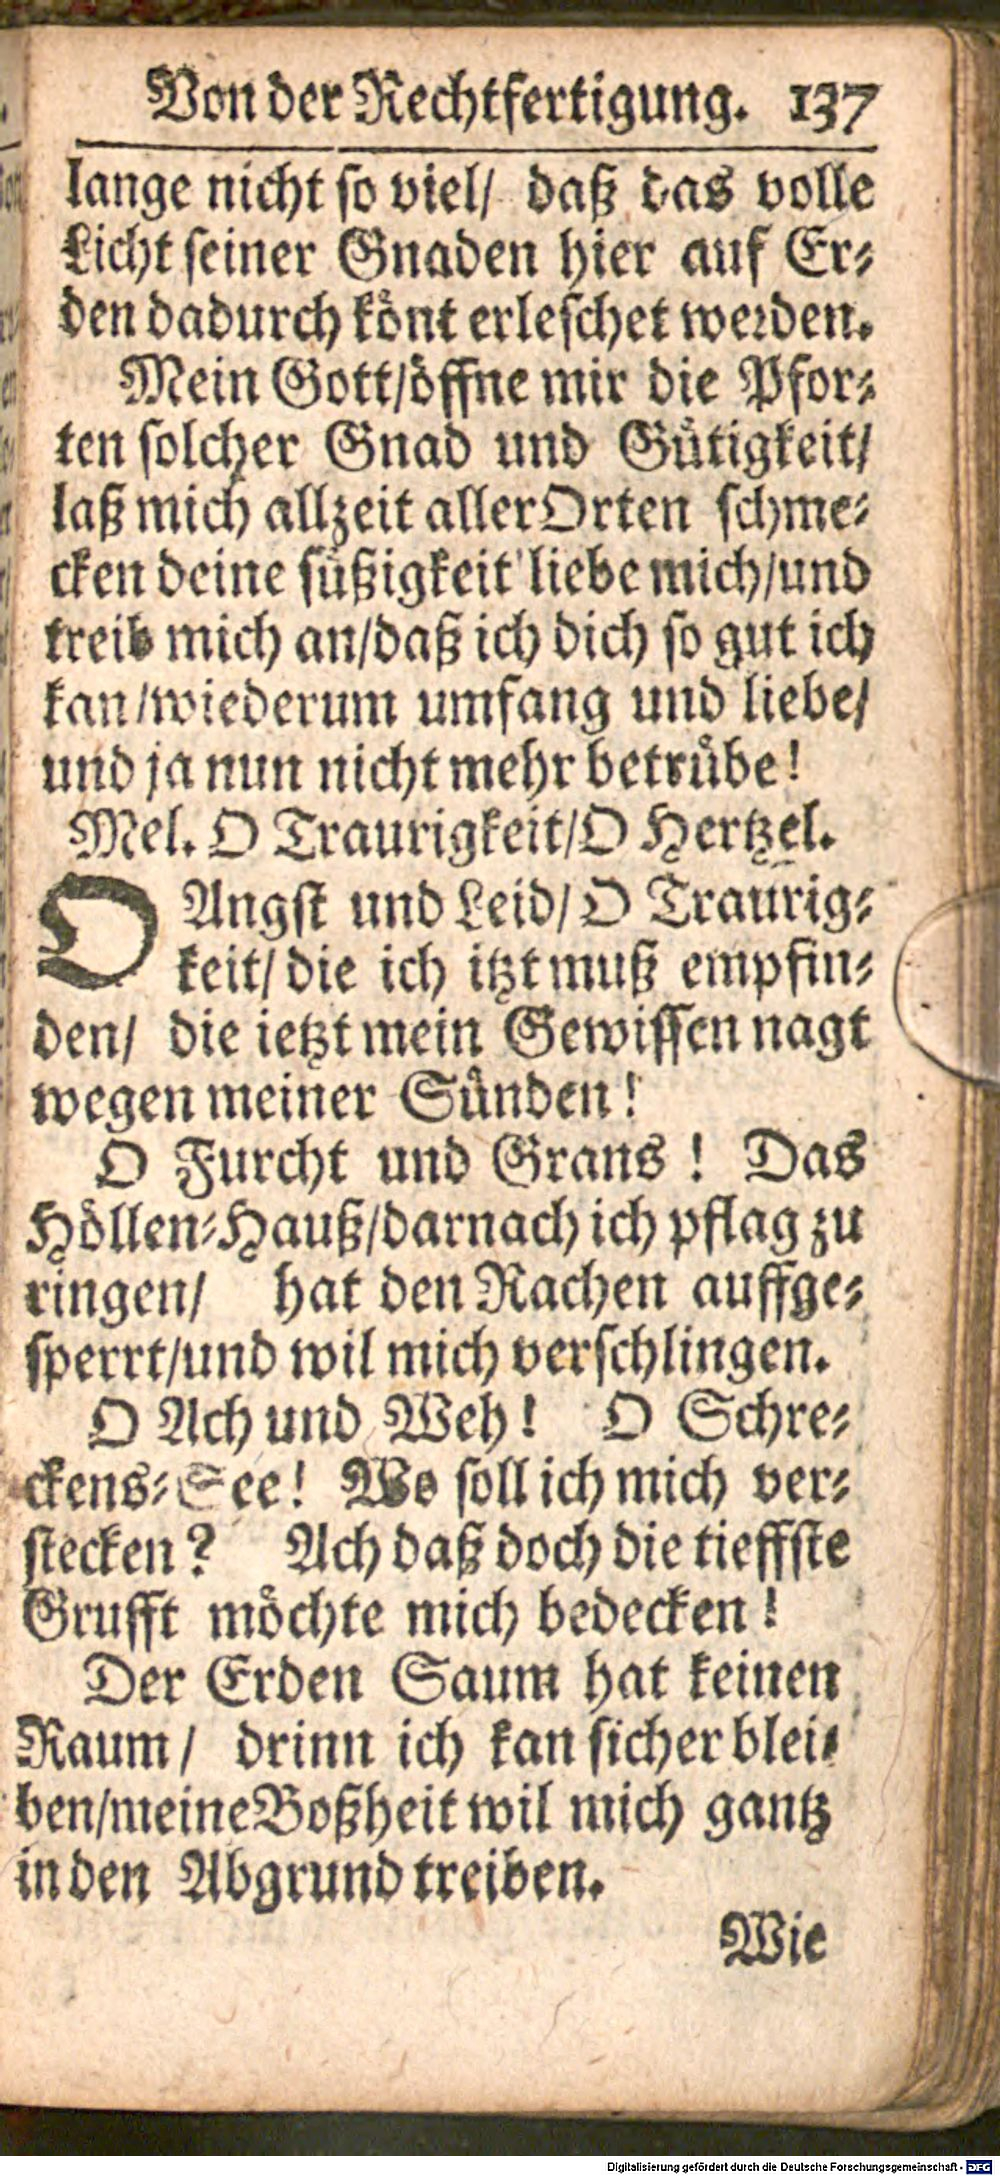 Von der Rechtfertigung. 137
lange nicht so viel/ daß das volle
Licht seiner Gnaden hier auf Er-
den dadurch könt erleschet werden.
Mein Gott/öffne mir die Pfor-
ten solcher Gnad und Gütigkeit/
laß mich allzeit aller Orten schme-
cken deine süßigkeit liebe mich/und
treib mich an/daß ich dich so gut ich
kan/wiederum umfang und liebe/
und ja nun nicht mehr betrübe!
Mel. O Traurigkeit/O Hertzel.
O Angst und Leid/ O Traurig-
keit/ die ich itzt muß empfin-
den/ die ietzt mein Gewissen nagt
wegen meiner Sünden!
O Furcht und Graus! Das
Höllen-Hauß/darnach ich pflag zu
ringen/ hat den Rachen auffge-
sperrt/und wil mich verschlingen.
O Ach und Weh! O Schre-
ckens-See! Wo soll ich mich ver-
stecken? Ach daß doch die tieffste
Grufft möchte mich bedecken!
Der Erden Saum hat keinen
Raum/ drinn ich kan sicher blei-
ben/meine Boßheit wil mich gantz
in den Abgrund treiben.
Wie
Digitalisierung gefördert durch die Deutsche Forschungsgemeinschaft - DFG